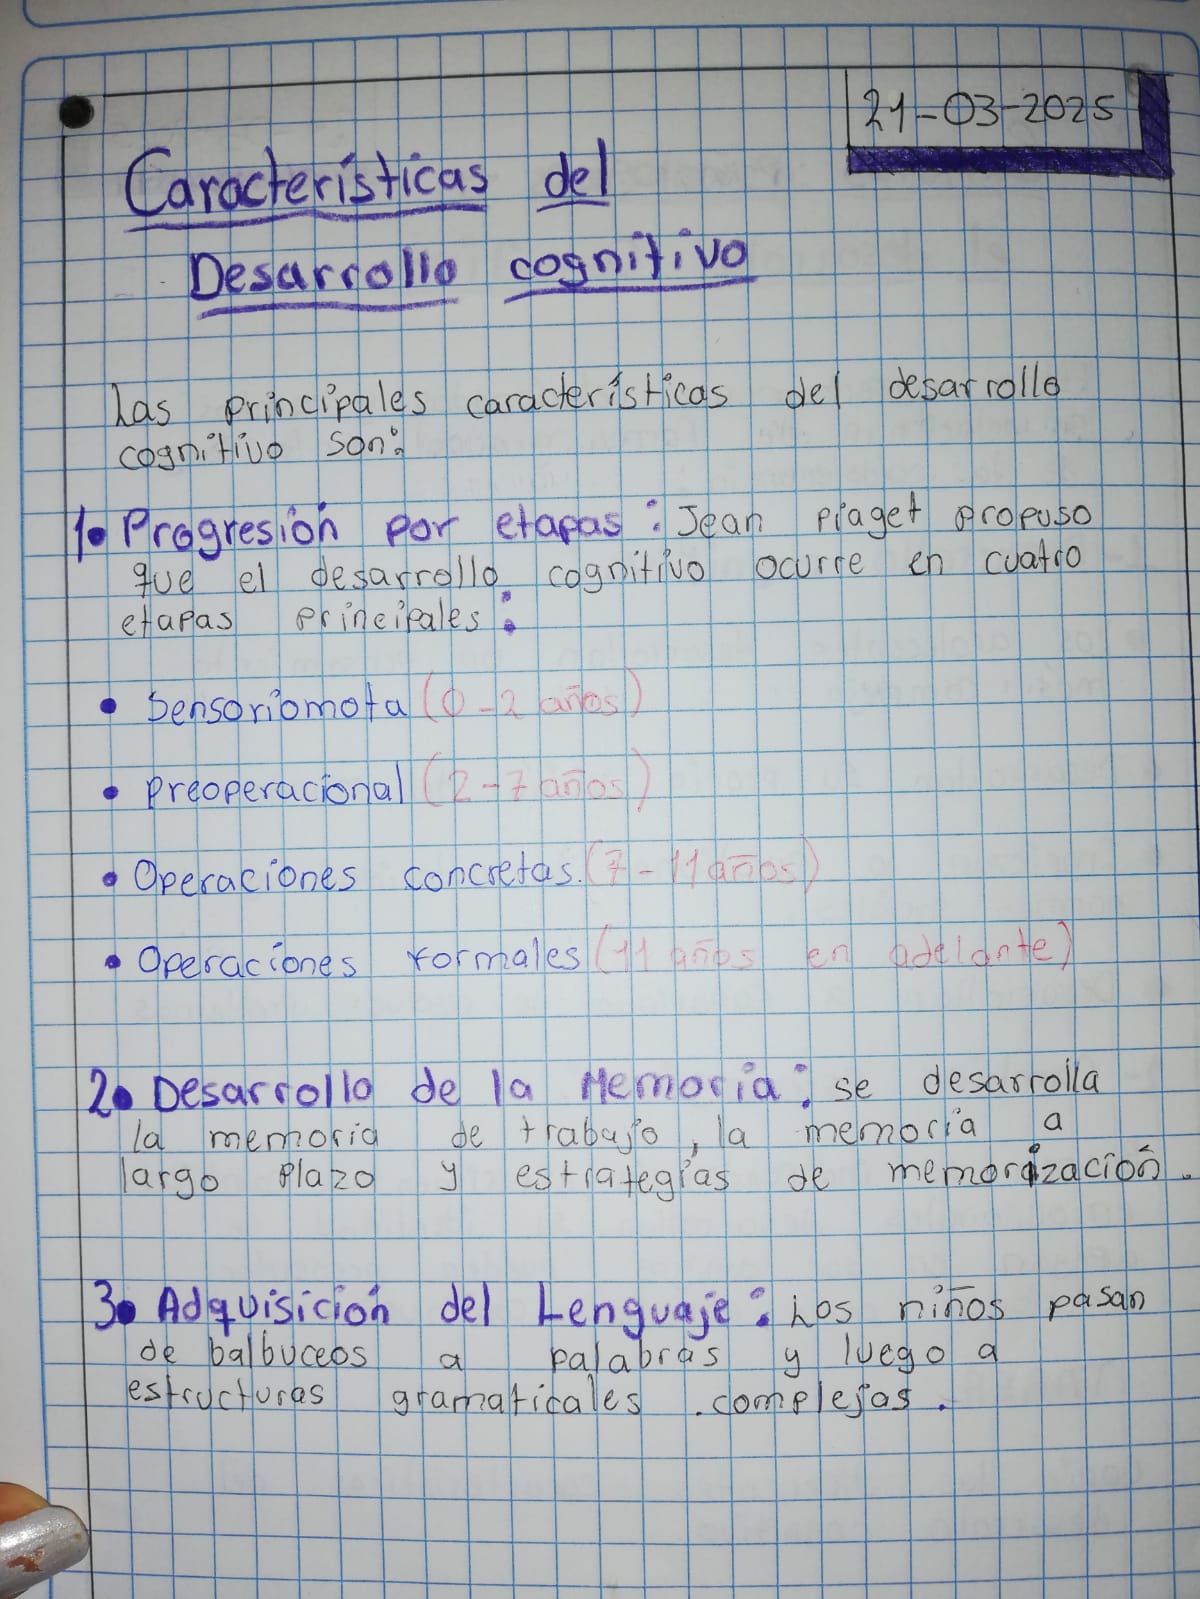 21-03-2025
Características del
Desarrollo cognitivo
Las principales características del desarrollo
cognitivo son:
1. Progresión por etapas: Jean piaget propuso
que el desarrollo cognitivo ocurre en cuatro
etapas principales:
• Sensoriomota (0-2 años)
• Preoperacional (2-7 años)
• Operaciones concretas. (7-11 años)
• Operaciones formales (11 años en adelante)
2. Desarrollo de la Memoria: se desarrolla
la memoria de trabajo, la memoria a
largo plazo y estrategias de memorización.
3. Adquisición del Lenguaje: Los niños pasan
de balbuceos a palabras y luego a
estructuras gramaticales .complejas.